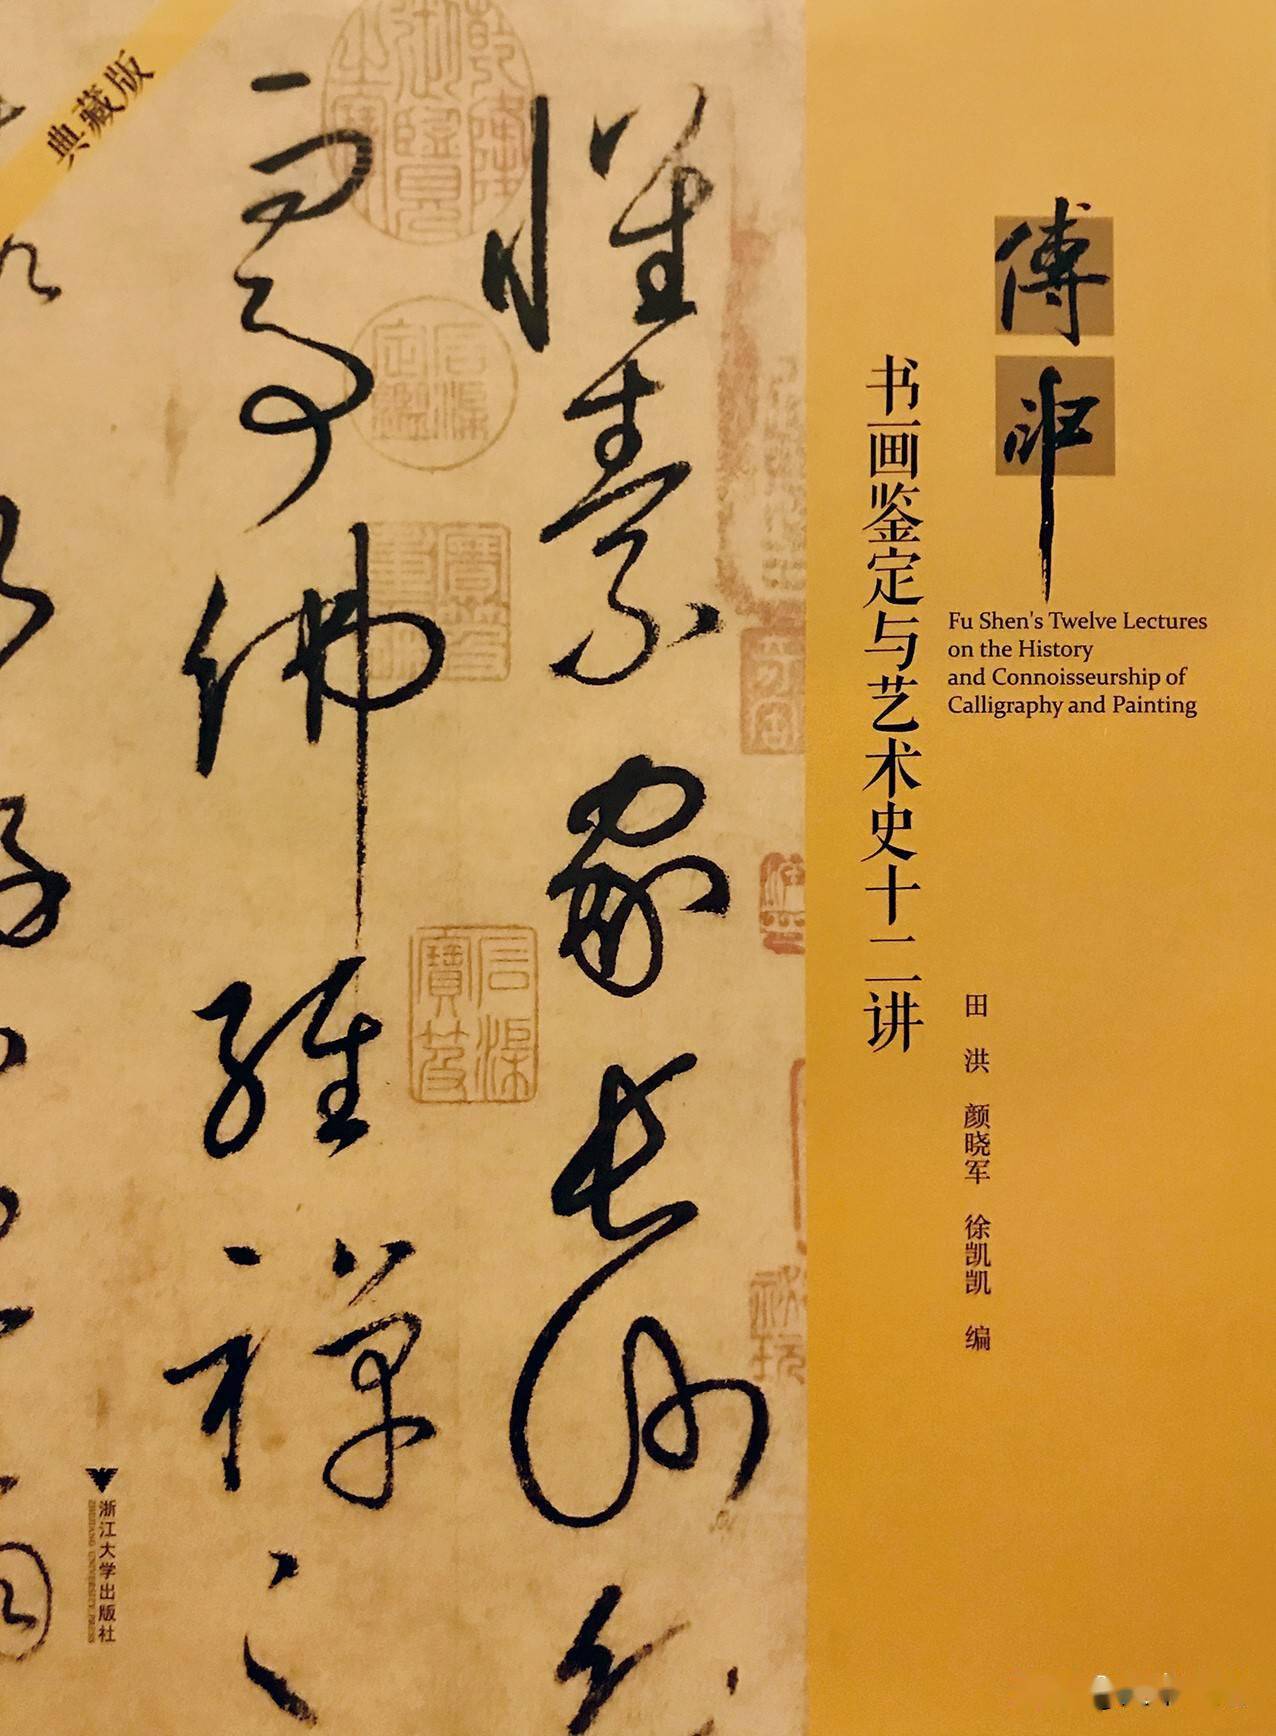 典藏版
傅申
书画鉴定与艺术史十二讲
Fu Shen's Twelve Lectures
on the History
and Connoisseurship of
Calligraphy and Painting
田洪 颜晓军 徐凯凯 编
懷素家長沙幼
而事佛經禪之
乾隆御覽之寶
石渠定鑑
寶笈重編
石渠寶笈
浙江大学出版社
ZHEJIANG UNIVERSITY PRESS